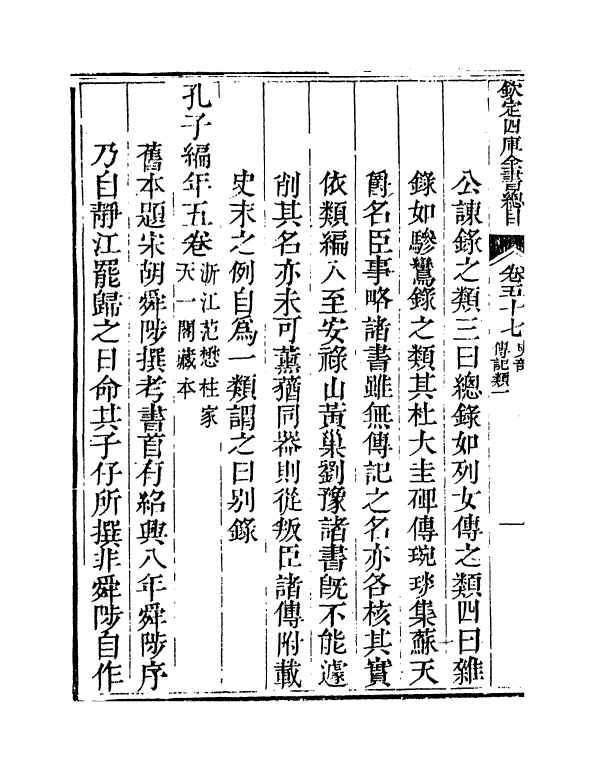 欽定四庫全書總目 卷五十七 史部 傳記類一 一
公諫錄之類三曰總錄如列女傳之類四曰雜
錄如驂鸞錄之類其杜大圭碑傳琬琰集蘇天
爵名臣事略諸書雖無傳記之名亦各核其實
依類編入至安祿山黃巢劉豫諸書旣不能遽
削其名亦未可薰蕕同器則從叛臣諸傳附載
史末之例自爲一類謂之曰别錄
孔子編年五卷 浙江范懋柱家天一閣藏本
舊本題宋胡舜陟撰考書首有紹興八年舜陟序
乃自靜江罷歸之日命其子仔所撰非舜陟自作